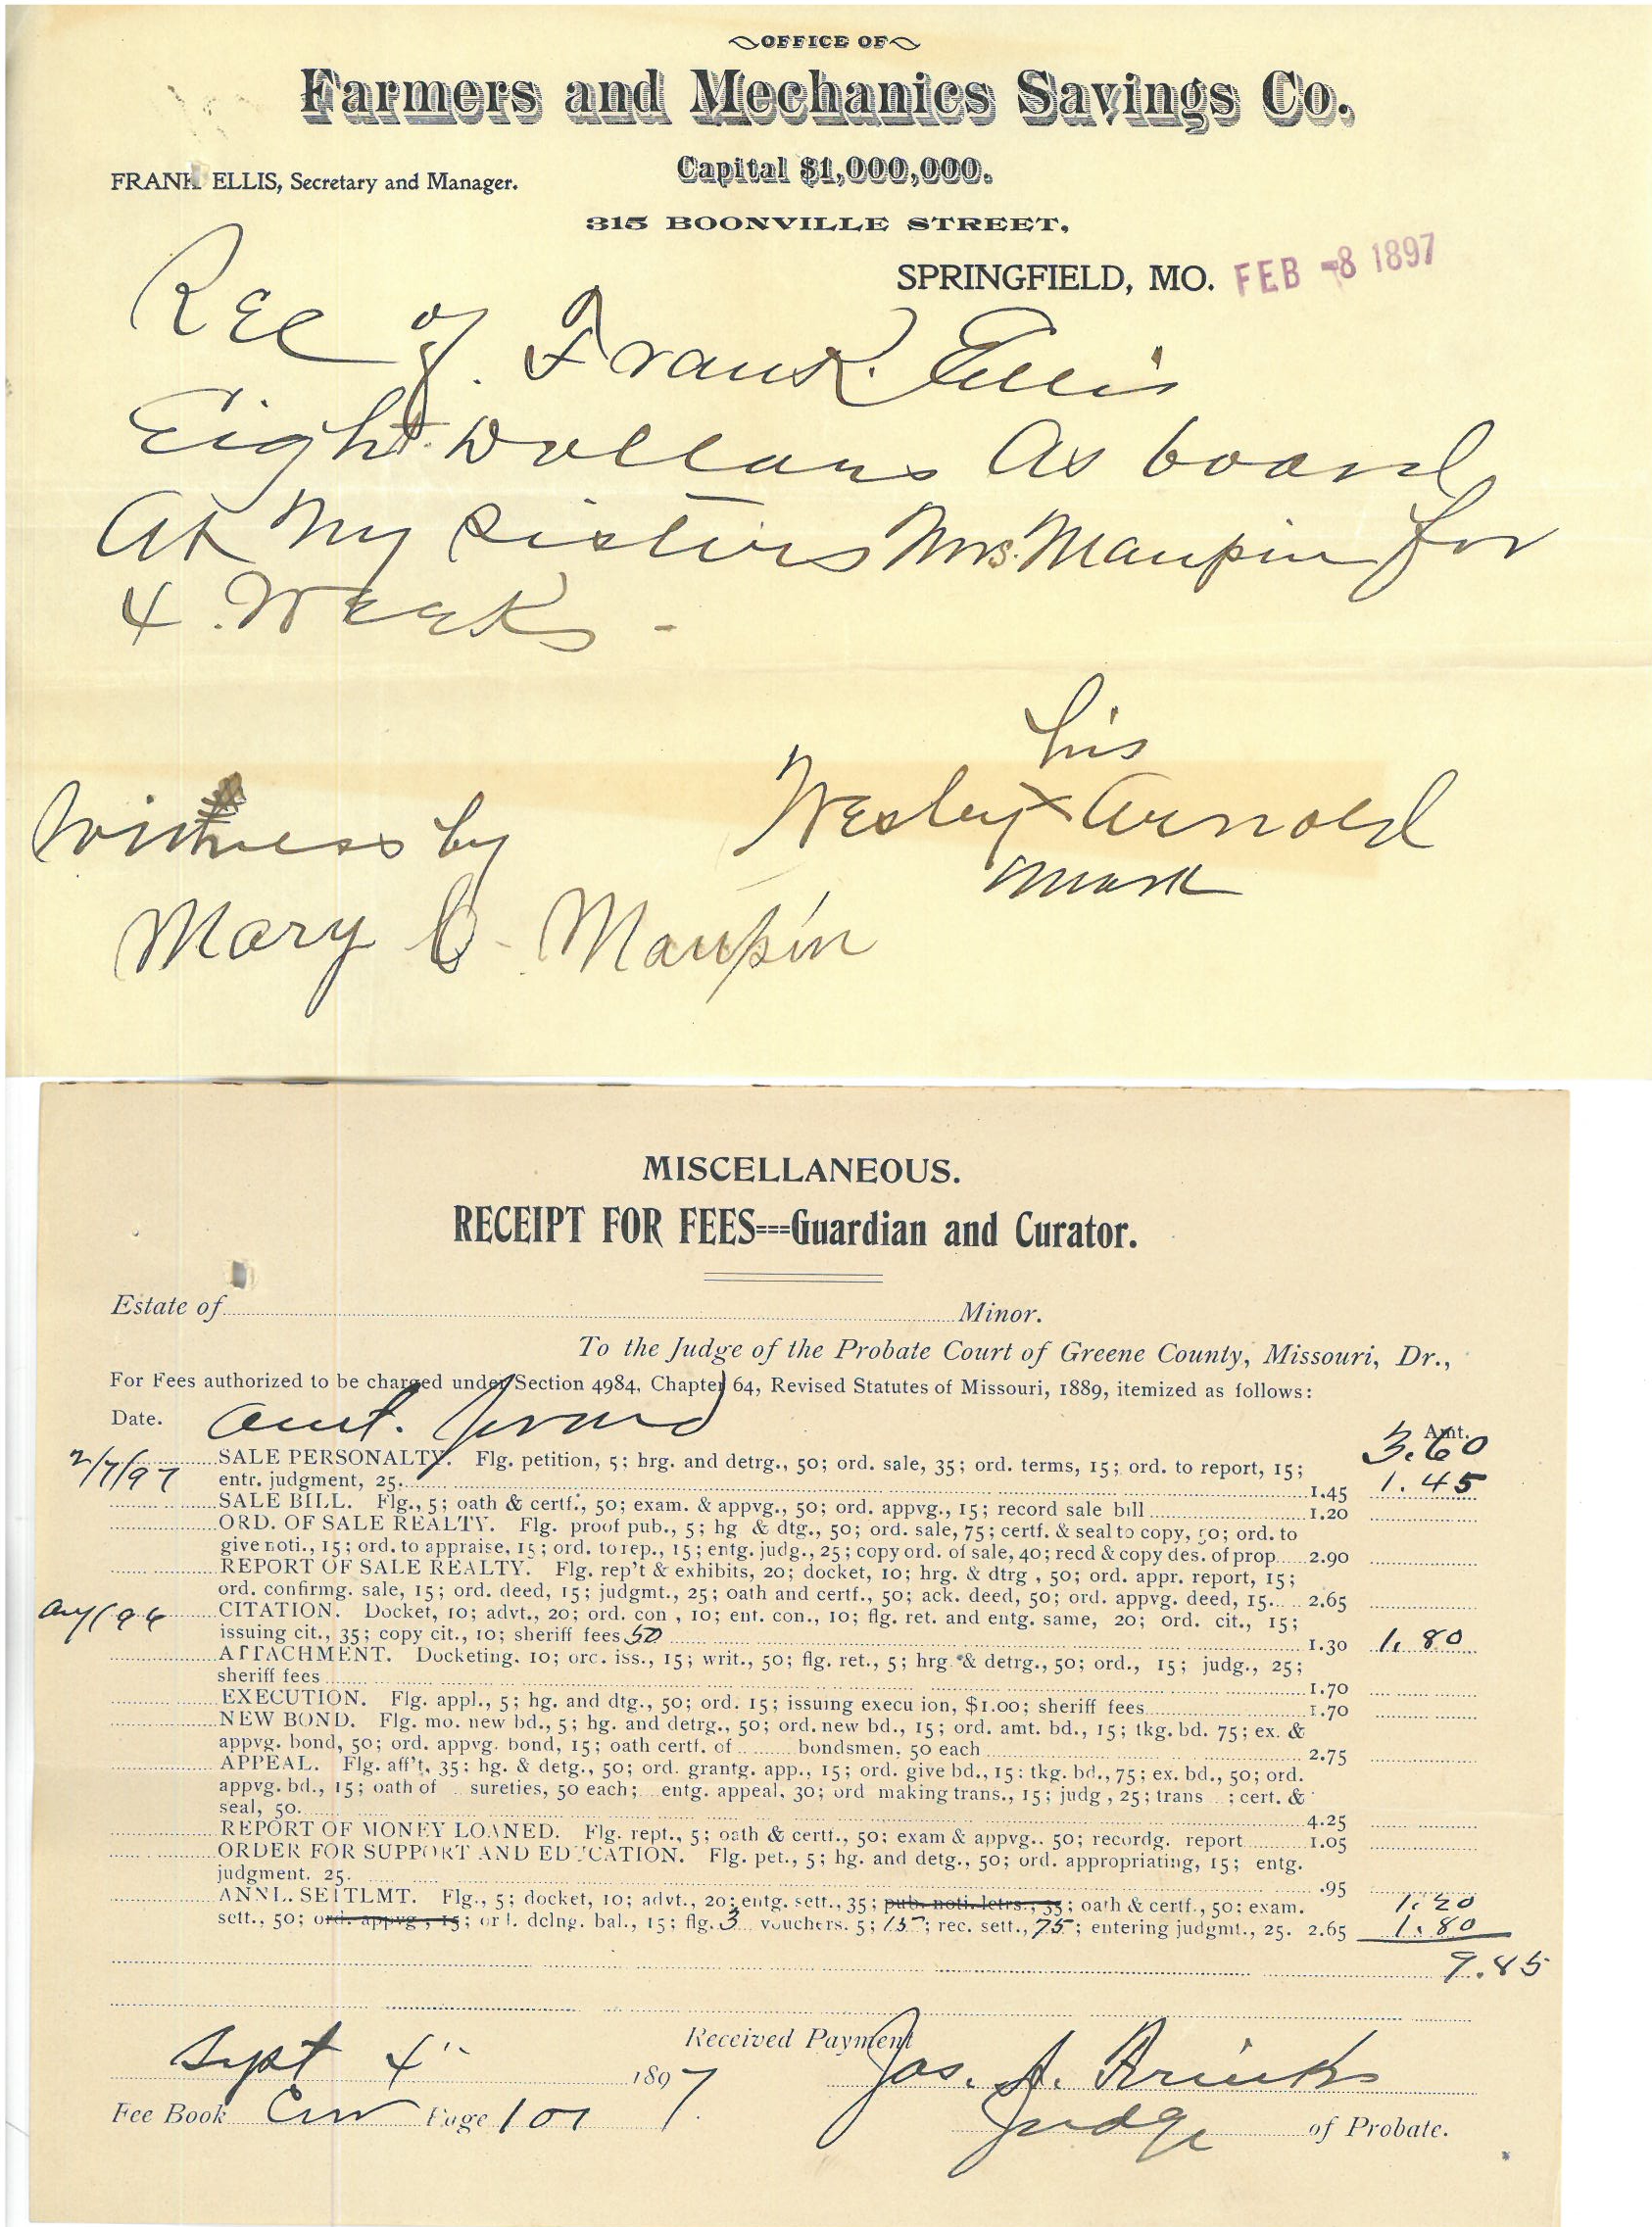 OFFICE OF
Farmers and Mechanics Savings Co.
Capital $1,000,000.
FRANK ELLIS, Secretary and Manager.
315 BOONVILLE STREET,
SPRINGFIELD, MO. FEB -8 1897
Rec of. Frank. Ellis
Eight Dollars As board
At My Sisters Mrs. Maupin for
4. Weeks -
his
Wesley X Arnold
mark
Witness by
Mary C - Maupin
MISCELLANEOUS.
RECEIPT FOR FEES===Guardian and Curator.
Estate of Minor.
To the Judge of the Probate Court of Greene County, Missouri, Dr.,
For Fees authorized to be charged under Section 4984, Chapter 64, Revised Statutes of Missouri, 1889, itemized as follows:
Date. Amt. Amt.
3.60
2/7/97 SALE PERSONALTY. Flg. petition, 5; hrg. and detrg., 50; ord. sale, 35; ord. terms, 15; ord. to report, 15;
entr. judgment, 25. 1.45 1.45
SALE BILL. Flg., 5; oath & certf., 50; exam. & appvg., 50; ord. appvg., 15; record sale bill 1.20
ORD. OF SALE REALTY. Flg. proof pub., 5; hg & dtg., 50; ord. sale, 75; certf. & seal to copy, 50; ord. to
give noti., 15; ord. to appraise, 15; ord. to rep., 15; entg. judg., 25; copy ord. of sale, 40; recd & copy des. of prop 2.90
REPORT OF SALE REALTY. Flg. rep't & exhibits, 20; docket, 10; hrg. & dtrg , 50; ord. appr. report, 15;
ord. confirmg. sale, 15; ord. deed, 15; judgmt., 25; oath and certf., 50; ack. deed, 50; ord. appvg. deed, 15. 2.65
CITATION. Docket, 10; advt., 20; ord. con , 10; ent. con., 10; flg. ret. and entg. same, 20; ord. cit., 15;
issuing cit., 35; copy cit., 10; sheriff fees 50 1.30 1.80
ATTACHMENT. Docketing. 10; orc. iss., 15; writ., 50; flg. ret., 5; hrg. & detrg., 50; ord., 15; judg., 25;
sheriff fees 1.70
EXECUTION. Flg. appl., 5; hg. and dtg., 50; ord. 15; issuing execu ion, $1.00; sheriff fees 1.70
NEW BOND. Flg. mo. new bd., 5; hg. and detrg., 50; ord. new bd., 15; ord. amt. bd., 15; tkg. bd. 75; ex. &
appvg. bond, 50; ord. appvg. bond, 15; oath certf. of bondsmen, 50 each 2.75
APPEAL. Flg. aff't, 35; hg. & detg., 50; ord. grantg. app., 15; ord. give bd., 15: tkg. bd., 75; ex. bd., 50; ord.
appvg. bd., 15; oath of sureties, 50 each; entg. appeal, 30; ord making trans., 15; judg , 25; trans ; cert. &
seal, 50. 4.25
REPORT OF MONEY LOANED. Flg. rept., 5; oath & certf., 50; exam & appvg.. 50; recordg. report 1.05
ORDER FOR SUPPORT AND EDUCATION. Flg. pet., 5; hg. and detg., 50; ord. appropriating, 15; entg.
judgment. 25. .95
ANNL. SETTLMT. Flg., 5; docket, 10; advt., 20; entg. sett., 35; pub. noti. letrs., 35; oath & certf., 50: exam. 1.20
sett., 50; ord. appvg., 15; ord. dclng. bal., 15; flg. 3 vouchers. 5; 15; rec. sett., 75; entering judgmt., 25. 2.65 1.80
9.85
Received Payment
Sept 4" 1897 Jos. A.
Fee Book Page 101 Judge of Probate.